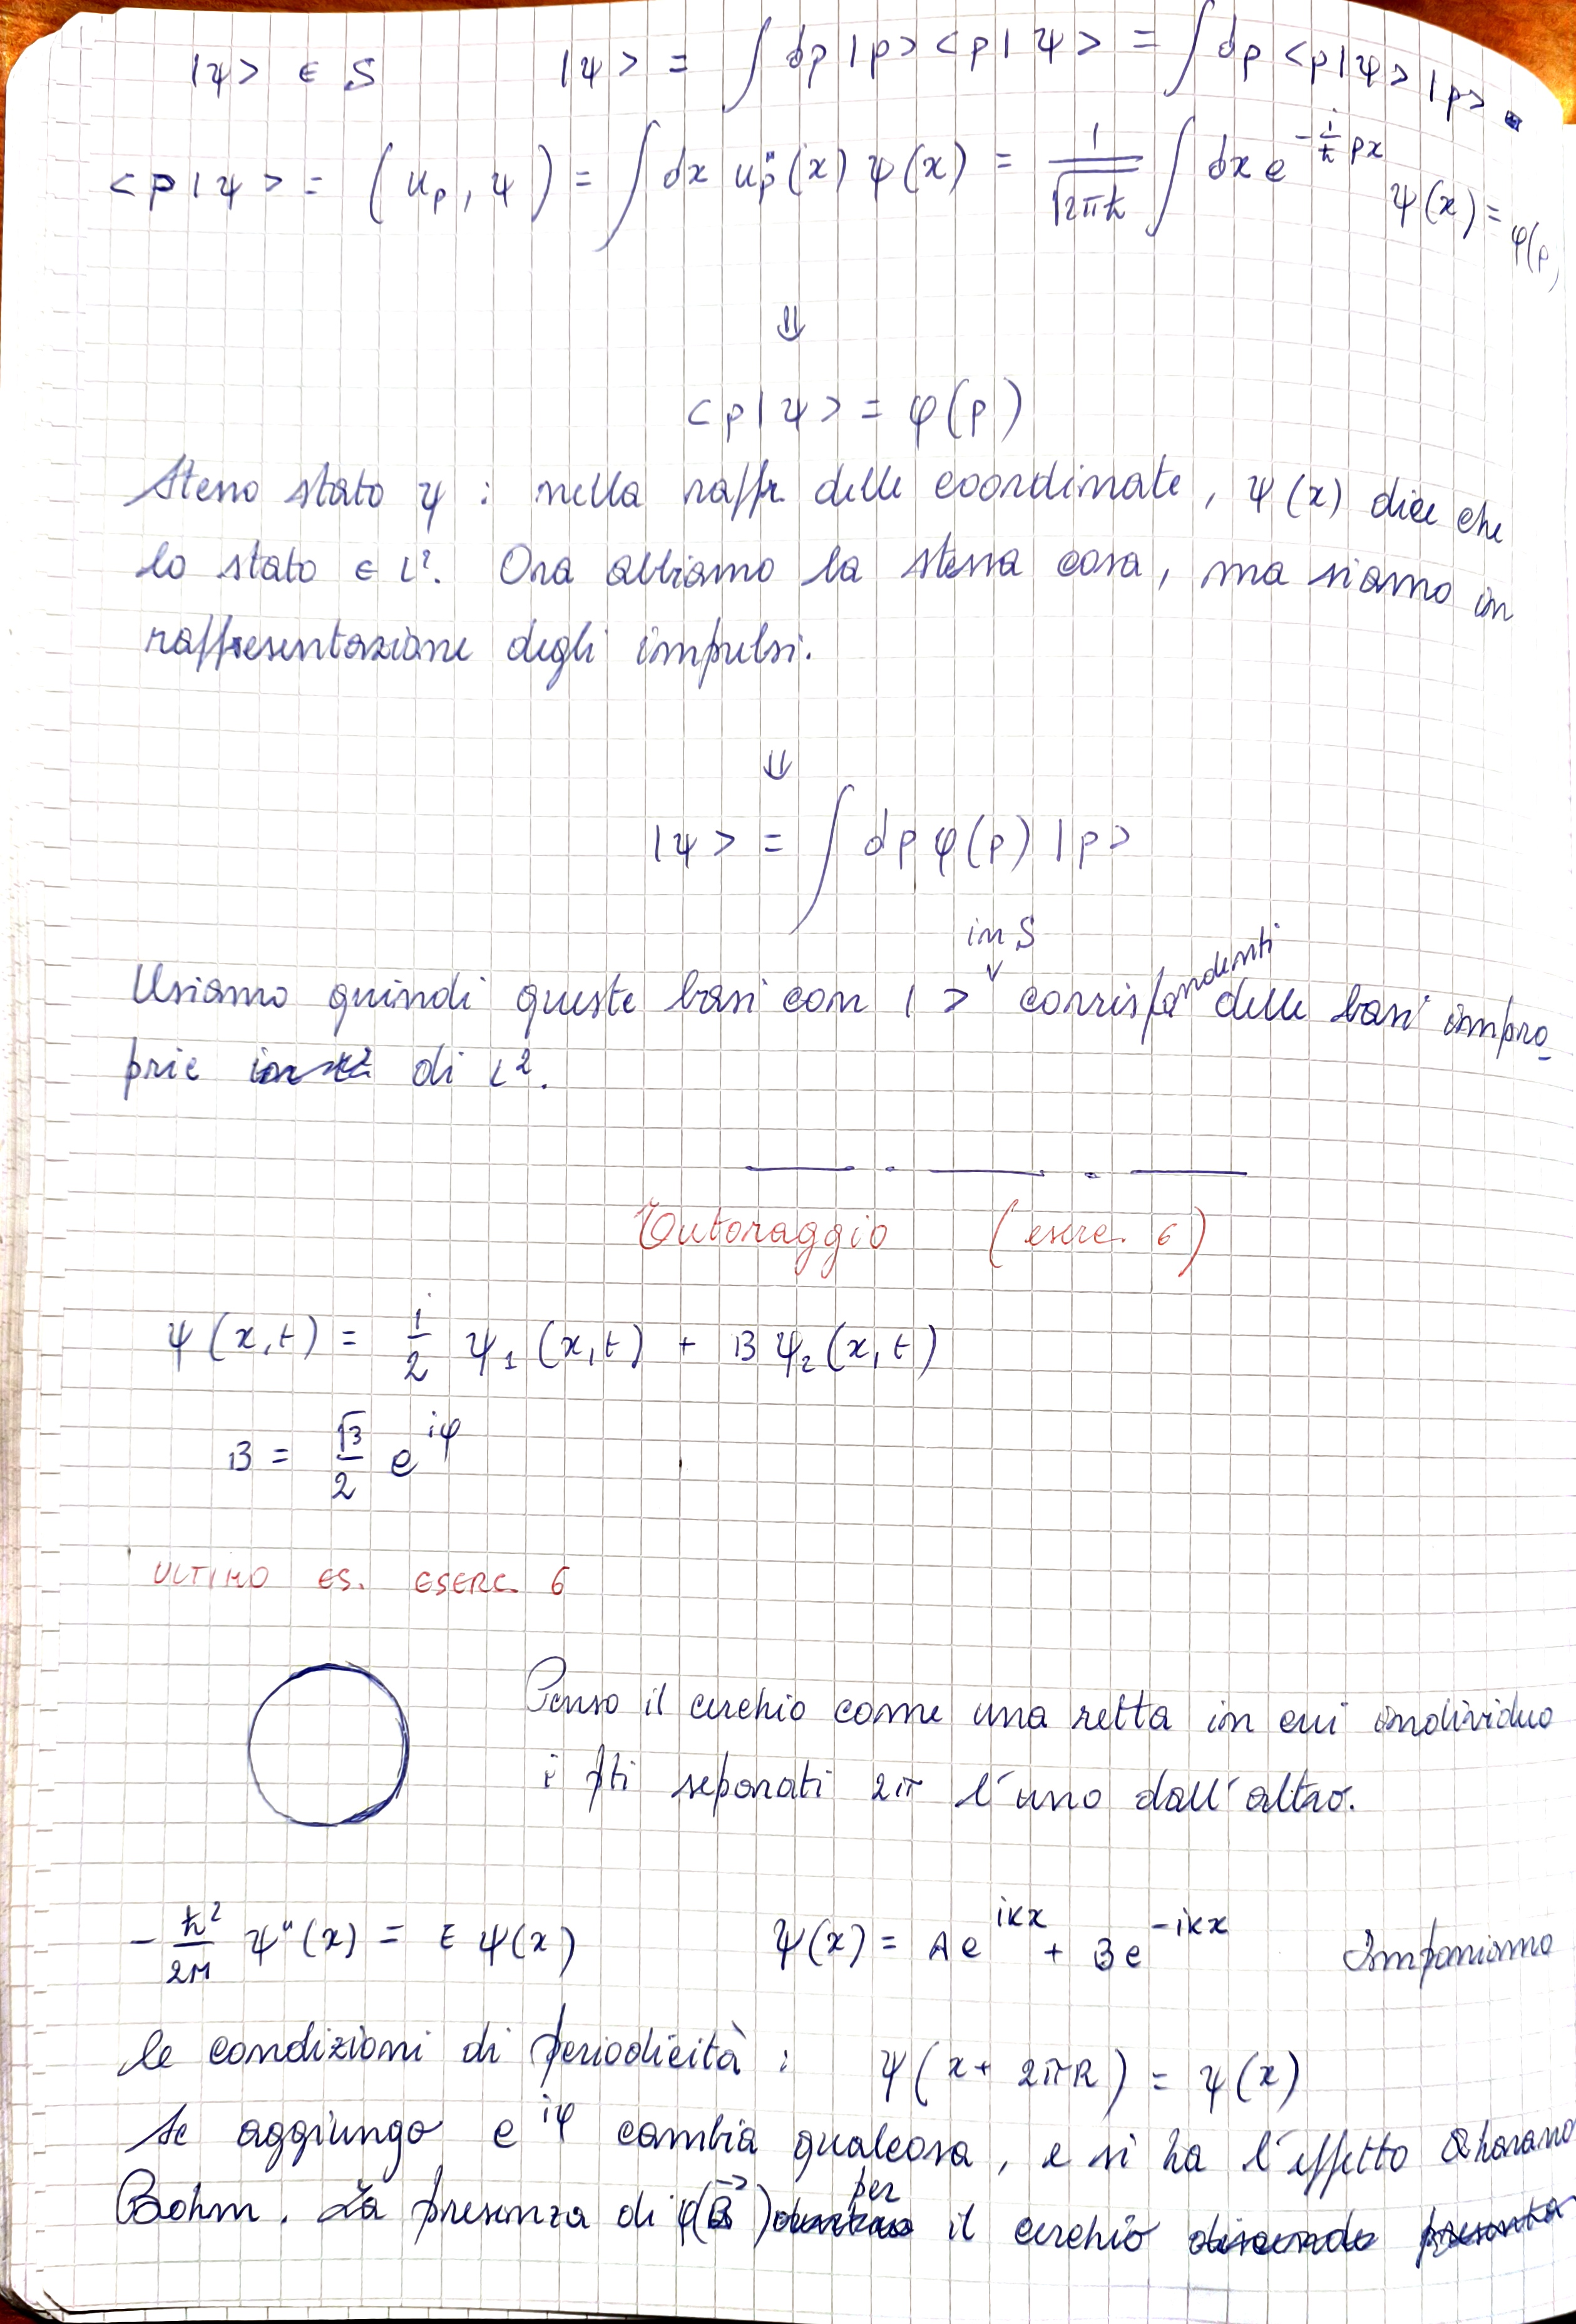 |ψ> ∈ S |ψ> = ∫ dp |p> <p|ψ> = ∫ dp <p|ψ> |p>
<p|ψ> = (u_p, ψ) = ∫ dx u_p*(x) ψ(x) = 1/√(2πħ) ∫ dx e^{-i/ħ px} ψ(x) = φ(p)
⇓
<p|ψ> = φ(p)
Stesso stato ψ : nella rappr. delle coordinate, ψ(x) dice che
lo stato ∈ L². Ora abbiamo la stessa cosa, ma siamo in
rappresentazione degli impulsi.
⇓
|ψ> = ∫ dp φ(p) |p>
in S
Usiamo quindi queste basi con | > corrispondenti delle basi impro-
prie di L².
Tutoraggio (eserc. 6)
ψ(x,t) = 1/2 ψ₁(x,t) + B ψ₂(x,t)
B = √3/2 e^{iφ}
ULTIMO ES. ESERC. 6
Penso il cerchio come una retta in cui individuo
i pti separati 2π l'uno dall'altro.
- ħ²/2M ψ''(x) = E ψ(x) ψ(x) = A e^{ikx} + B e^{-ikx} Imponiamo
le condizioni di periodicità : ψ(x + 2πR) = ψ(x)
Se aggiungo e^{iφ} cambia qualcosa, e si ha l'effetto Aharano
Bohm. La presenza di φ(B⃗) per il cerchio